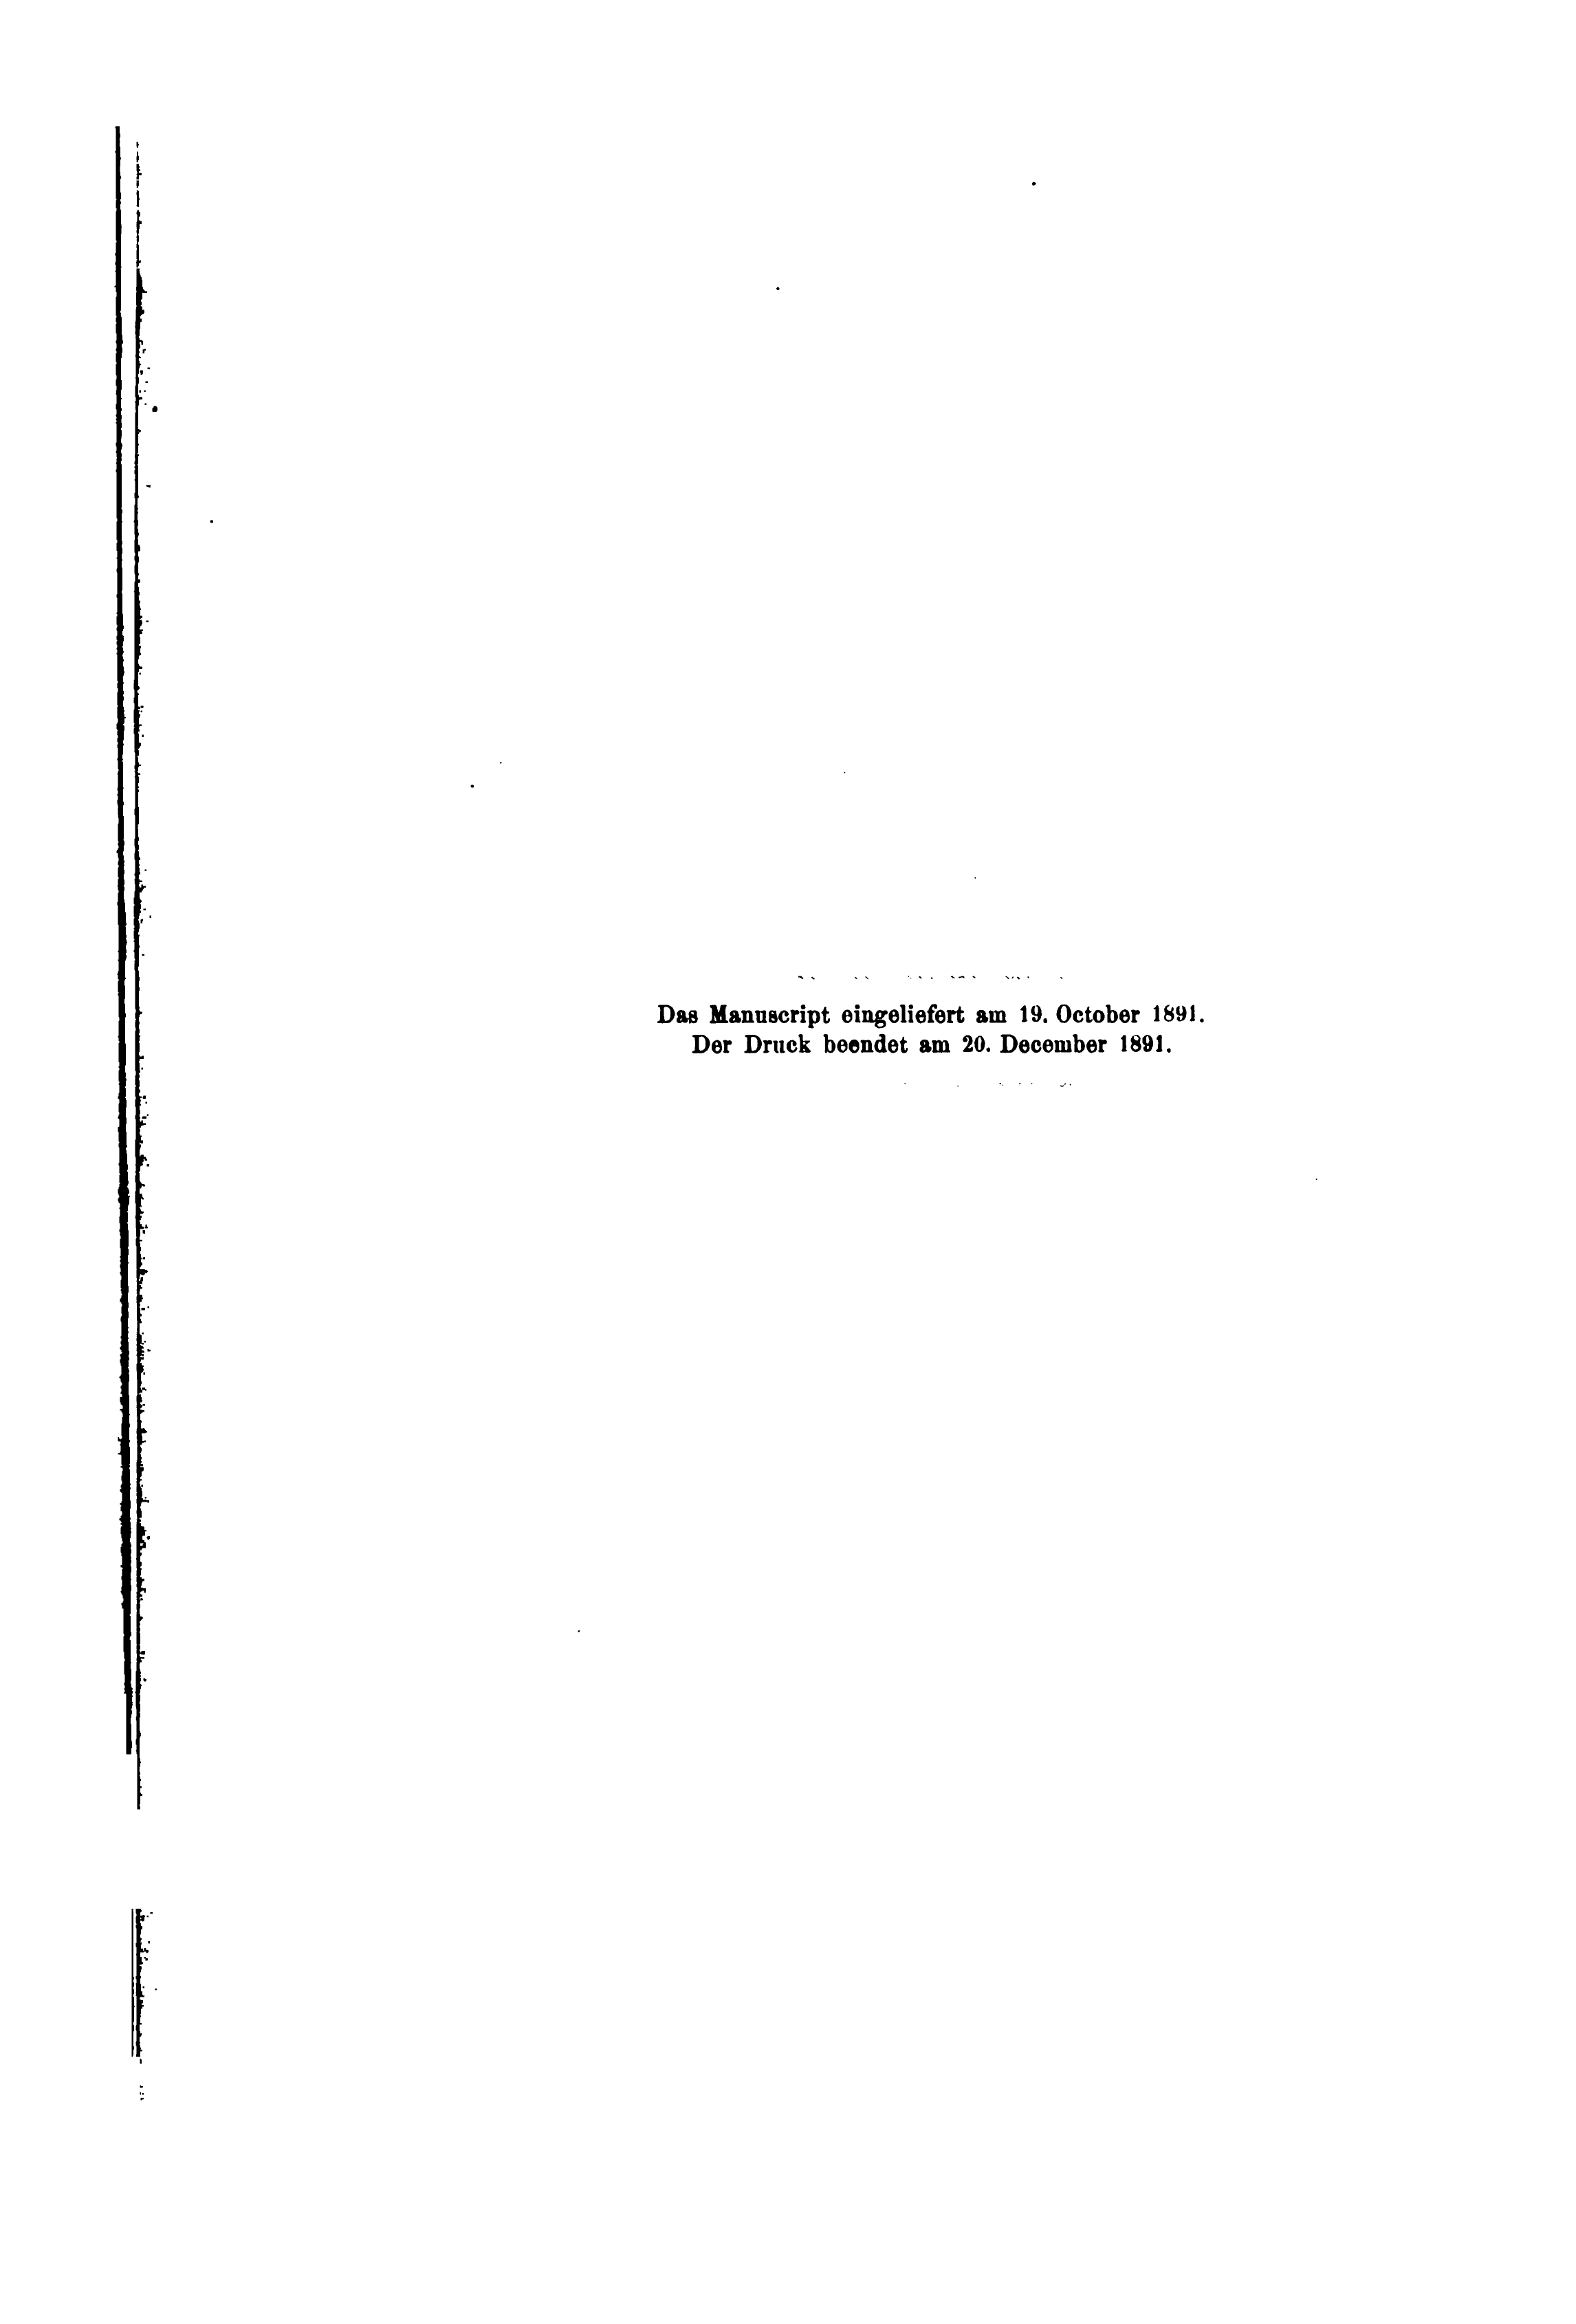 Das Manuscript eingeliefert am 19. October 1891.
Der Druck beendet am 20. December 1891.